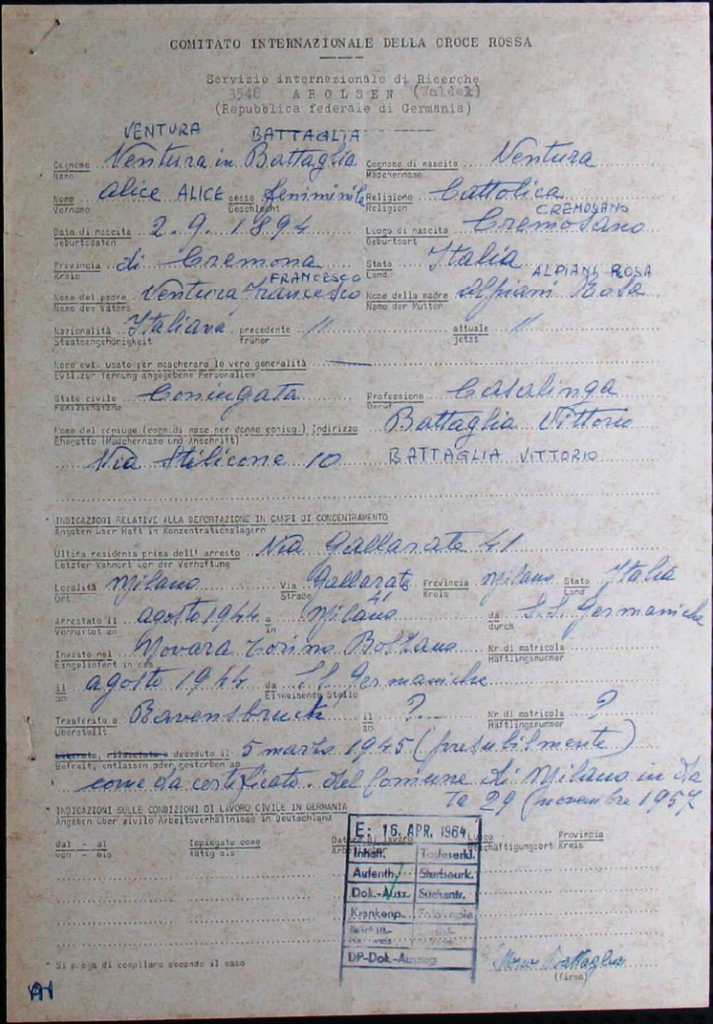 COMITATO INTERNAZIONALE DELLA CROCE ROSSA
Servizio internazionale di Ricerche
3548 AROLSEN (Waldek)
(Repubblica federale di Germania)
VENTURA BATTAGLIA
Cognome Ventura in Battaglia Cognome di nascita Ventura
Name Mädchenname
Nome alice ALICE sesso femminile Religione Cattolica
Vorname Geschlecht Religion CREMOSANO
Data di nascita 2.9.1894 Luogo di nascita Cremosano
Geburtsdaten Geburtsort
Provincia di Cremona Stato Italia
Kreis FRANCESCO Land ALPIANI ROSA
Nome del padre Ventura Francesco Nome della madre Alpiani Rosa
Name des Vaters Name der Mutter
Nazionalità Italiana precedente " attuale "
Staatsangehörigkeit früher jetzt
Nome evt. usato per mascherare le vere generalità
Evtl. zur Tarnung angegebene Personalien
Stato civile Coniugata Professione Casalinga
Familienstand Beruf
Nome del coniuge (cogn. di nasc. per donne coniug.) Indirizzo Battaglia Vittorio
Ehegatte (Mädchenname und Anschrift)
Via Stilicone 10 BATTAGLIA VITTORIO
* INDICAZIONI RELATIVE ALLA DEPORTAZIONE IN CAMPI DI CONCENTRAMENTO
Angaben über Haft in Konzentrationslagern
Ultima residenza prima dell' arresto Via Gallarate 41
Letzter Wohnort vor der Verhaftung
Località Milano Via Gallarate Provincia Milano Stato Italia
Ort Straße 41 Kreis Land
Arrestato il agosto 1944 a Milano da S.S. Germaniche
Verhaftet am in durch
Inviato nel Novara Torino Bolzano Nr di matricola
Eingeliefert in das Häftlingsnummer
il agosto 1944 da S.S. Germaniche
am Einweisende Stelle
Trasferito a Ravensbruck il ?... Nr di matricola ?
Überstellt an Häftlingsnummer
liberato, rilasciato o deceduto il 5 marzo 1945 (presubilmente)
Befreit, entlassen oder gestorben am
come da certificato del Comune di Milano in da
ta 29 novembre 1957
* INDICAZIONI SULLE CONDIZIONI DI LAVORO CIVILE IN GERMANIA
Angaben über zivile Arbeitsverhältnisse in Deutschland
dal - al Impiegato come Luogo Provincia
von - bis tätig als Beschäftigungsort Kreis
E: 16. APR. 1964
Inhaft. Todeserkl.
Aufenth. Sterbeurk.
Dok.-Ausz. Suchantr.
Krankenp. Fotokopie
DP-Dok.-Auszug
* Si prega di compilare secondo il caso
Battaglia
(firma)